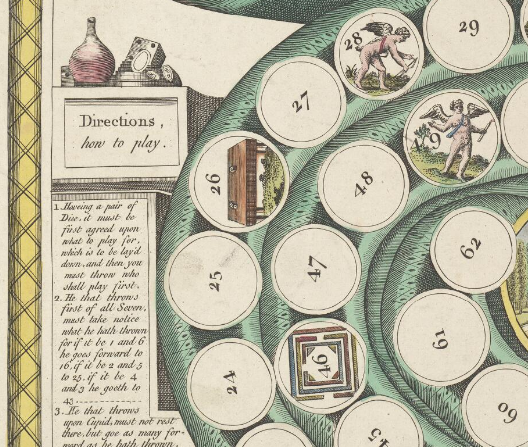 Directions,
how to play.
1. Haveing a pair of
Dice, it must be
first agreed upon
what to play for,
which is to be lay'd
down, and then you
must throw who
shall play first.
2. He that throws
first of all Seven,
must take notice
what he hath thrown
for if it be 1 and 6
he goes forward to
16, if it be 2 and 5
to 25, if it be 4
and 3 he goeth to
43
3. He that throws
upon Cupid, must not rest
there, but goe as many for-
ward as he hath thrown.
29
28
27
26
48
62
25
47
61
24
46
60
45